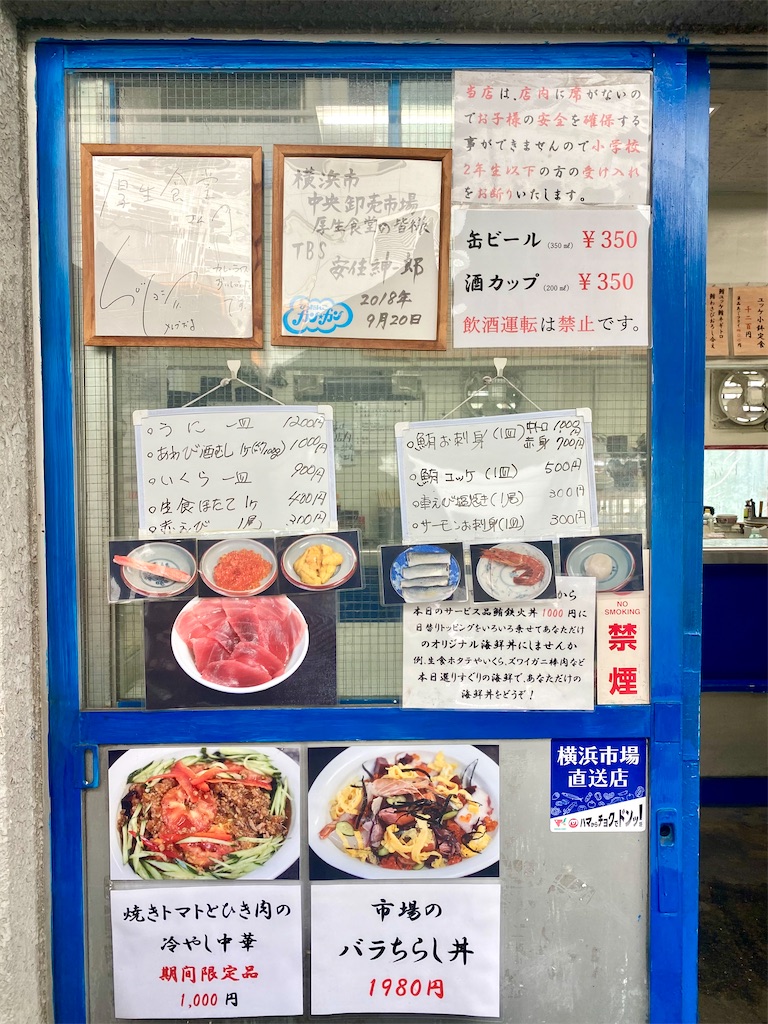 当店は、店内に席がないの
でお子様の安全を確保する
事ができませんので小学校
2年生以下の方の受け入れ
をお断りいたします。
厚生食堂
さん江
横浜市
中央卸売市場
厚生食堂の皆様へ
TBS
安住紳一郎
2018年
9月20日
缶ビール(350㎖) ¥350
酒カップ(200㎖) ¥350
飲酒運転は禁止です。
ユッケ小鉢定食
千二百円
○うに 一皿 1200円
○あわび酒むし 1ケ 1000円
○いくら 一皿 900円
○生食ほたて 1ケ 400円
○赤えび 1尾 300円
○鮪お刺身(1皿) 中トロ 1000円
赤身 700円
○鮪ユッケ(1皿) 500円
○赤えび塩焼き(1尾) 300円
○サーモンお刺身(1皿) 300円
から
本日のサービス品鮪鉄火丼1000円に
日替りトッピングをいろいろ乗せてあなただけ
のオリジナル海鮮丼にしませんか
例、生食ホタテやいくら、ズワイガニ棒肉など
本日選りすぐりの海鮮で、あなただけの
海鮮丼をどうぞ!
NO
SMOKING
禁
煙
横浜市場
直送店
ハマからチョクでドンッ!
焼きトマトとひき肉の
冷やし中華
期間限定品
1,000円
市場の
バラちらし丼
1980円